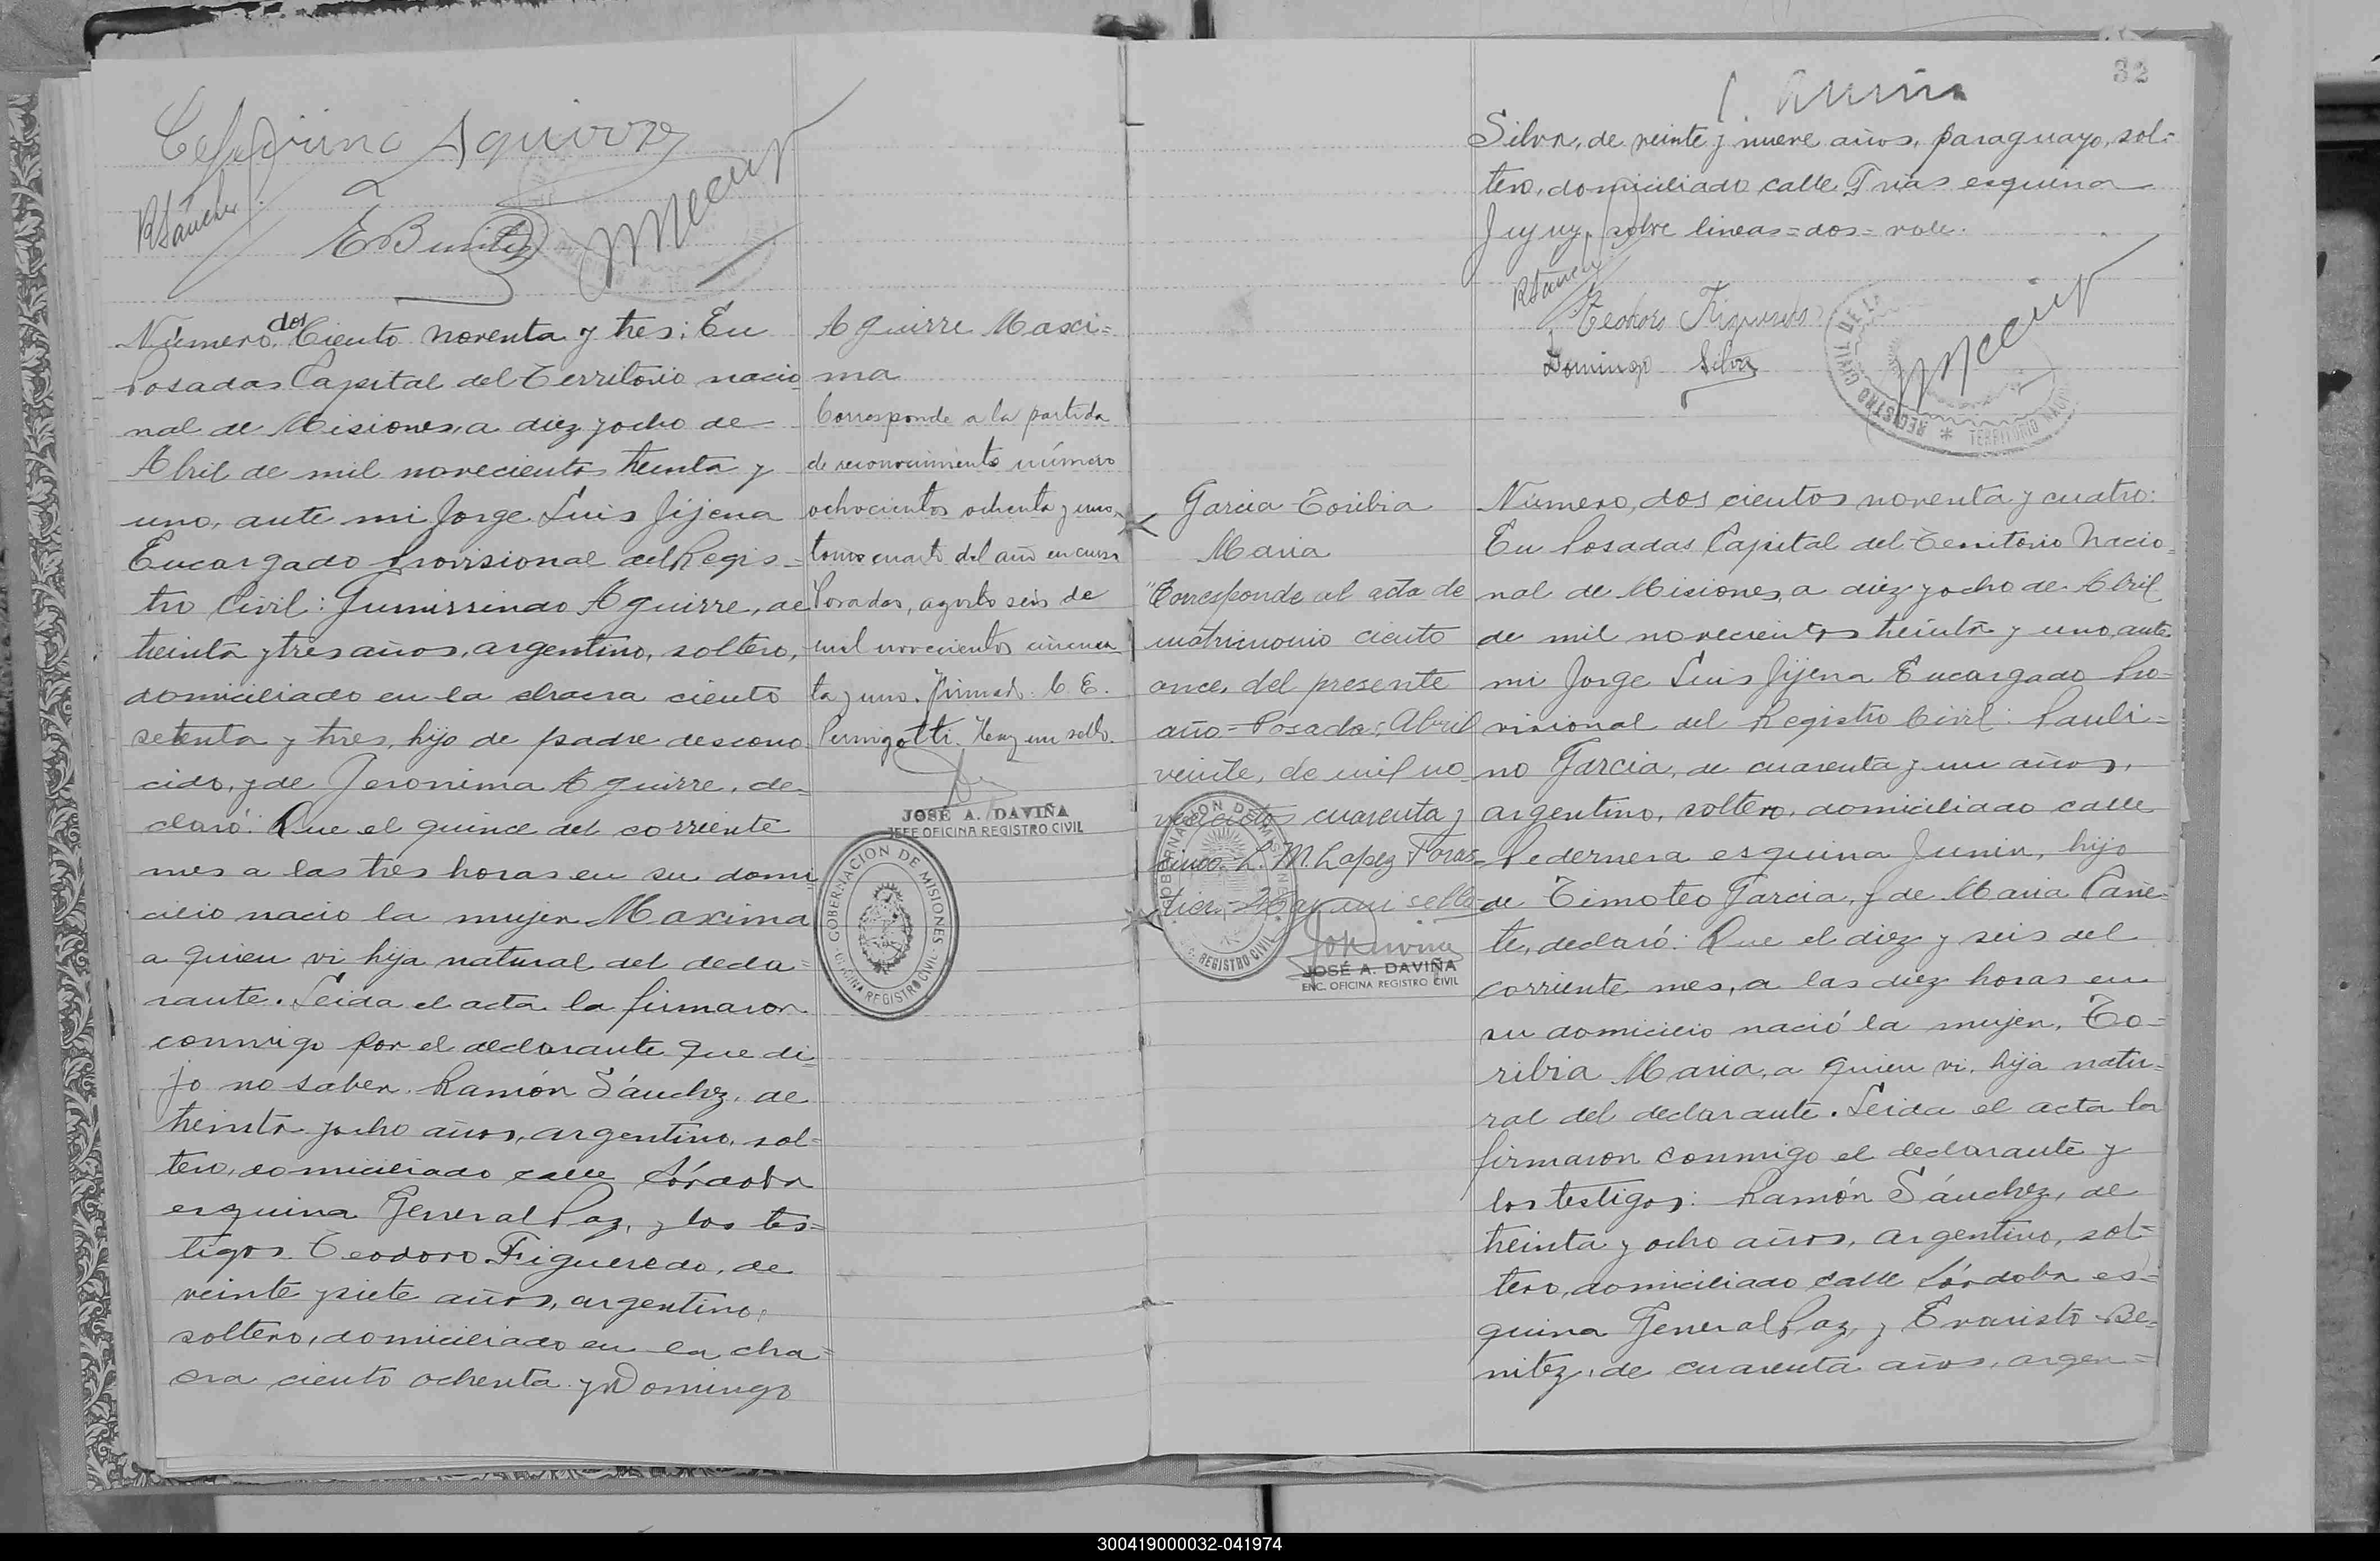 Ceferino Aguirre
RSánchez
EBenitez
Número dos Ciento noventa y tres: En
Posadas Capital del Territorio nacio
nal de Misiones, a diez y ocho de
Abril de mil novecientos treinta y
uno, ante mi Jorge Luis Jijena
Encargado Provisional del Regis=
tro Civil: Gumersindo Aguirre, de
treinta y tres años, argentino, soltero,
domiciliado en la chacra ciento
setenta y tres, hijo de padre descono
cido, y de Jeronima Aguirre, de=
claró: Que el quince del corriente
mes a las tres horas en su domi
cilio nacio la mujer Maxima
a quien vi hija natural del decla=
rante. Leida el acta la firmaron
conmigo por el declarante que di=
jo no saber Ramón Sánchez, de
treinta y ocho años, argentino, sol=
tero, domiciliado calle Córdoba
esquina General Paz, y los tes=
tigos Teodoro Figueredo, de
veinte y siete años, argentino,
soltero, domiciliado en la cha=
cra ciento ochenta y Domingo
Aguirre Maxi=
ma
Corresponde a la partida
de reconocimiento número
ochocientos ochenta y uno,
tomo cuarto del año en curso
Posadas, agosto seis de
mil novecientos cincuen
ta y uno. Firmado: C. E.
Hay un sello.
JOSÉ A. DAVIÑA
JEFE OFICINA REGISTRO CIVIL
GOBERNACION DE MISIONES
OFICINA REGISTRO CIVIL
32
Silva, de veinte y nueve años, paraguayo, sol=
tero, domiciliado calle Frias esquina
Jujuy. sobre lineas=dos=vale.
RSánchez
Teodoro Figueredo
Domingo Silva
REGISTRO CIVIL DE LA
TERRITORIO NACIONAL
Garcia Toribia
Maria
"Corresponde al acta de
matrimonio ciento
once, del presente
año - Posadas, Abril
veinte, de mil no
vecientos cuarenta y
cinco. L. M. Lopez
Hay un sello
GOBERNACION DE MISIONES
REGISTRO CIVIL
JOSÉ A. DAVIÑA
ENC. OFICINA REGISTRO CIVIL
Número, dos cientos noventa y cuatro:
En Posadas Capital del Territorio Nacio=
nal de Misiones, a diez y ocho de Abril
de mil novecientos treinta y uno, ante
mi Jorge Luis Jijena Encargado Pro=
visional del Registro Civil: Pauli=
no Garcia, de cuarenta y un años,
argentino, soltero, domiciliado calle
Pedernera esquina Junin, hijo
de Timoteo Garcia, y de Maria Cañe=
te, declaró: Que el diez y seis del
corriente mes, a las diez horas en
su domicilio nació la mujer, To=
ribia Maria, a quien vi, hija natu=
ral del declarante. Leida el acta la
firmaron conmigo el declarante y
los testigos: Ramón Sánchez, de
treinta y ocho años, argentino, sol=
tero, domiciliado calle Córdoba es=
quina General Paz, y Evaristo Be=
nitez, de cuarenta años, argen=
300419000032-041974